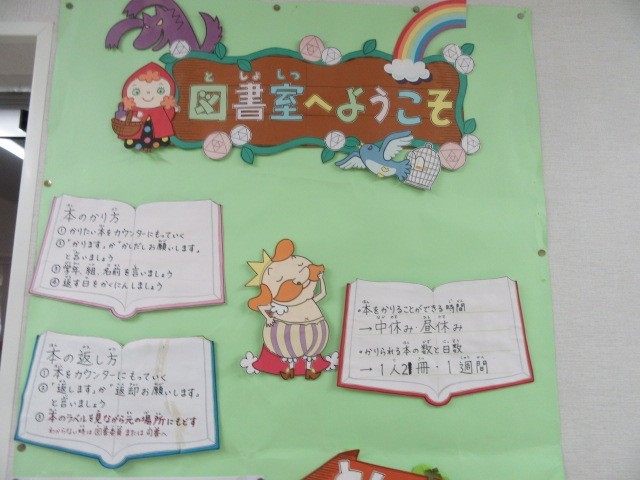 図書室へようこそ
本のかり方
① かりたい本をカウンターにもっていく
② "かります"か"かしだしお願いします"
と言いましょう
③ 学年、組、名前を言いましょう
④ 返す日をかくにんしましょう
・本をかりることができる時間
→中休み・昼休み
・かりられる本の数と日数
→1人2冊・1週間
本の返し方
① 本をカウンターにもっていく
② "返します"か"返却お願いします"
と言いましょう
③ 本のラベルを見ながら元の場所にもどす
わからない時は図書委員または司書へ